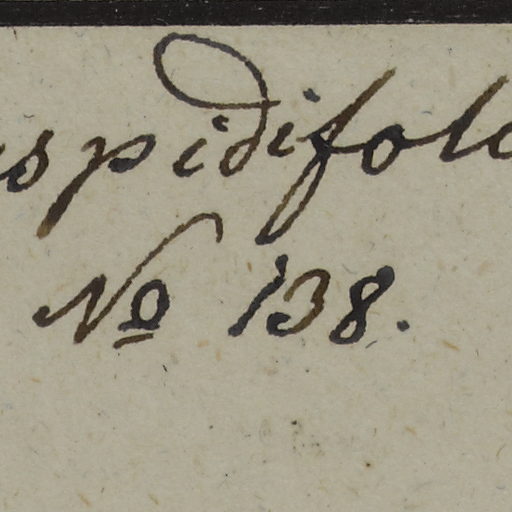 spidifol
№ 138.